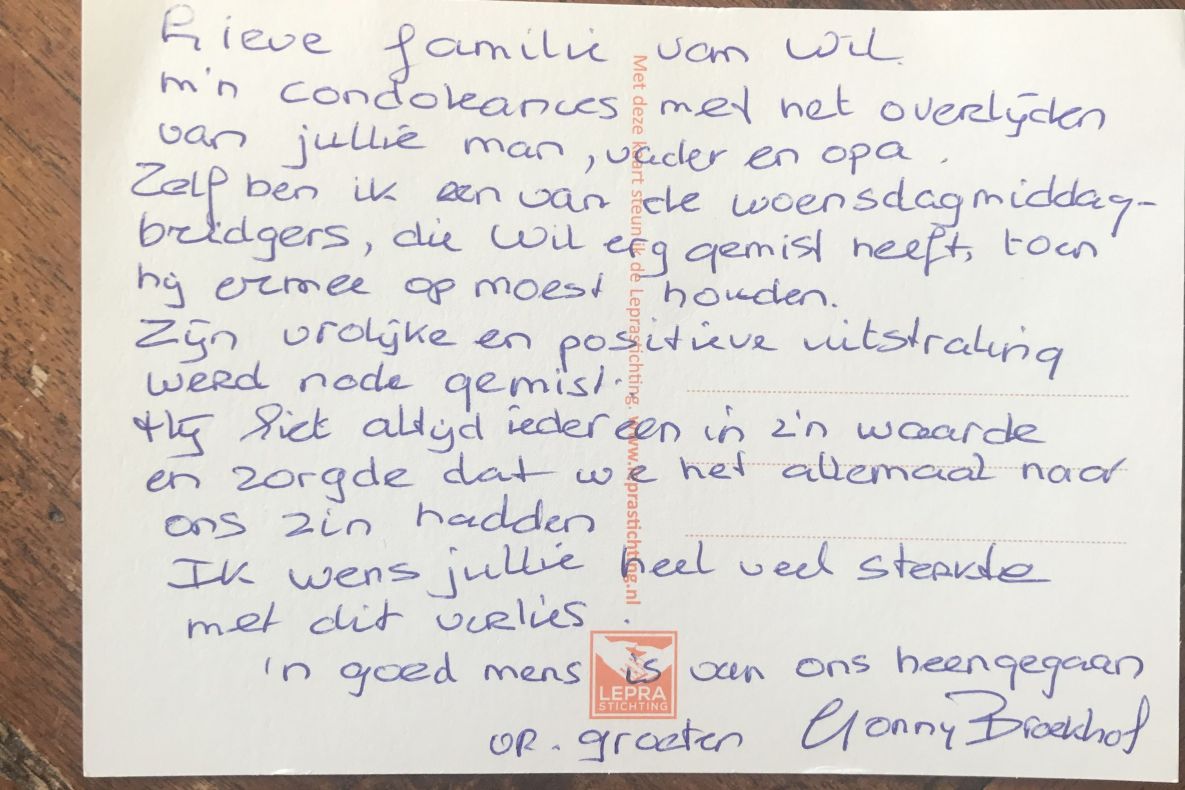 Lieve familie van Wil.
m'n condoleances met het overlijden
van jullie man, vader en opa.
Zelf ben ik een van de woensdagmiddag-
bridgers, die Wil erg gemist heeft, toen
hij ermee op moest houden.
Zijn vrolijke en positieve uitstraling
werd node gemist.
Hij liet altijd iedereen in z'n waarde
en zorgde dat we het allemaal naar
ons zin hadden
Ik wens jullie heel veel sterkte
met dit verlies.
'n goed mens is van ons heengegaan
vr. groeten Gonny Broekhof
Met deze kaart steun ik de Leprastichting. www.leprastichting.nl
LEPRA
STICHTING